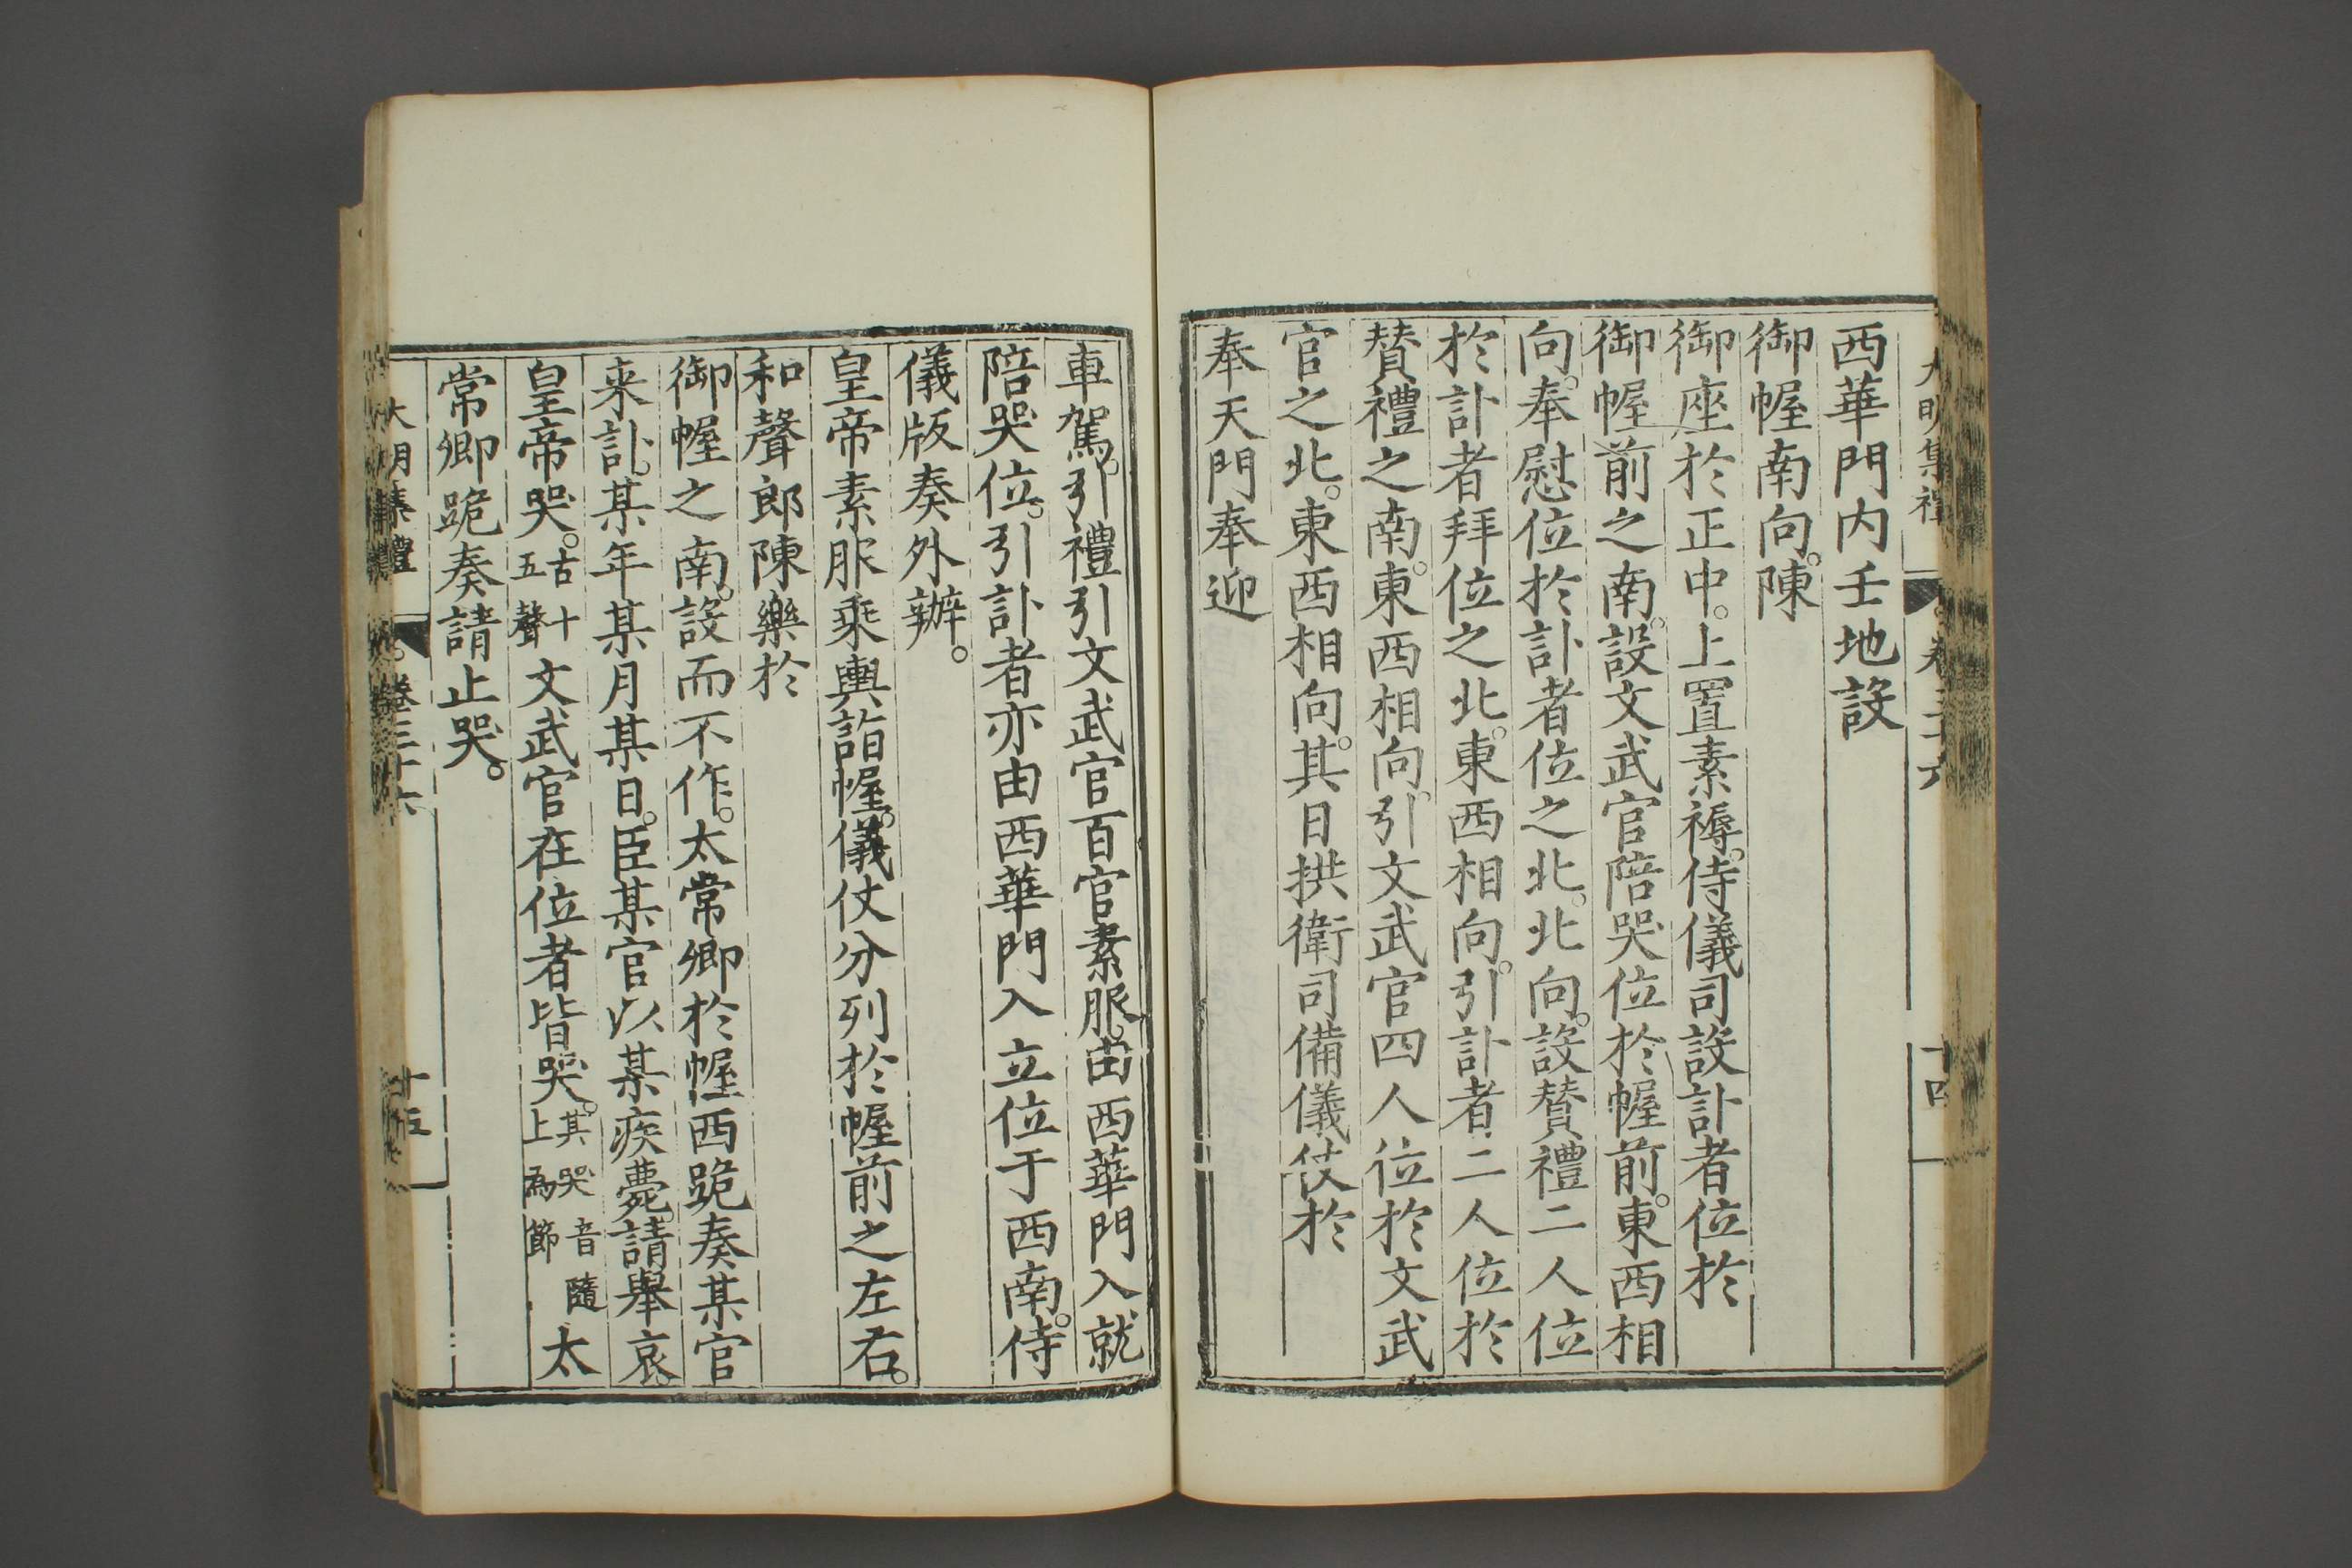 大明集禮 卷三十六 十四
西華門内壬地設
御幄南向。陳
御座於正中。上置素褥。侍儀司設訃者位於
御幄前之南。設文武官陪哭位於幄前。東西相
向。奉慰位於訃者位之北。北向。設賛禮二人位
於訃者拜位之北。東西相向。引訃者二人位於
賛禮之南。東西相向。引文武官四人位於文武
官之北。東西相向。其日拱衛司備儀仗於
奉天門奉迎
車駕。引禮引文武官百官素服。由西華門入就
陪哭位。引訃者亦由西華門入立位于西南。侍
儀版奏外辦。
皇帝素服乘輿詣幄。儀仗分列於幄前之左右。
和聲郎陳樂於
御幄之南。設而不作。太常卿於幄西跪奏某官
来訃。某年某月某日。臣某官以某疾薨。請舉哀。
皇帝哭。古十五聲文武官在位者皆哭。其哭音隨上為節太
常卿跪奏請止哭。
大明集禮 卷三十六 十五